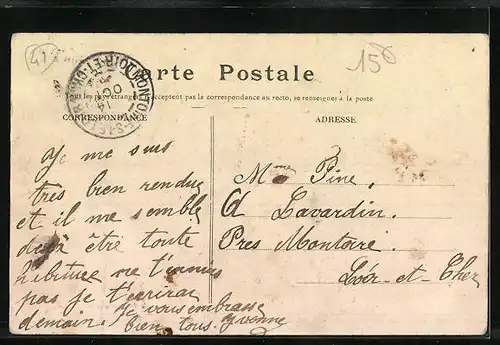 41
15
Carte Postale
Tous les pays étrangers n'acceptent pas la correspondance au recto, se renseigner à la poste
CORRESPONDANCE
ADRESSE
Je me suis
tres bien rendue
et il me semble
deja être toute
habituee ne t'ennuis
pas je t'ecrirai
demain. Je vous embrasse
bien tous. Yvonne
Mme Pine,
à Lavardin.
Pres Montoire
Loir-et-Cher